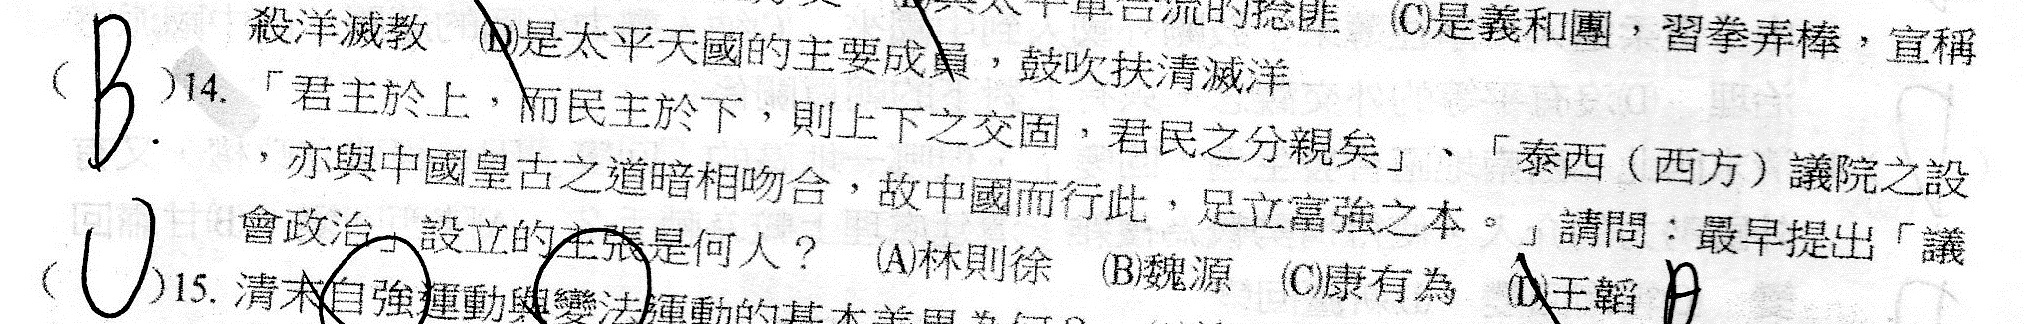 殺洋滅教 (D)是太平天國的主要成員，鼓吹扶清滅洋 的捻匪 (C)是義和團，習拳弄棒，宣稱
(B.)14.「君主於上，而民主於下，則上下之交固，君民之分親矣」、「泰西（西方）議院之設
，亦與中國皇古之道暗相吻合，故中國而行此，足立富強之本。」請問：最早提出「議
會政治」設立的主張是何人？ (A)林則徐 (B)魏源 (C)康有為 (D)王韜 A
( )15. 清末自強運動與變法運動的基本差異為何？